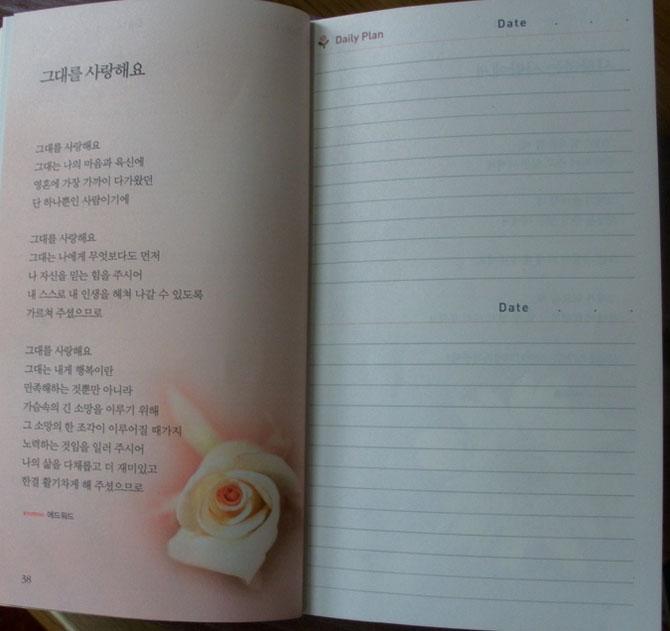 그대를 사랑해요
그대를 사랑해요
그대는 나의 마음과 육신에
영혼에 가장 가까이 다가왔던
단 하나뿐인 사람이기에
그대를 사랑해요
그대는 나에게 무엇보다도 먼저
나 자신을 믿는 힘을 주시어
내 스스로 내 인생을 헤쳐 나갈 수 있도록
가르쳐 주셨으므로
그대를 사랑해요
그대는 내게 행복이란
만족해하는 것뿐만 아니라
가슴속의 긴 소망을 이루기 위해
그 소망의 한 조각이 이루어질 때까지
노력하는 것임을 일러 주시어
나의 삶을 다채롭고 더 재미있고
한결 활기차게 해 주셨으므로
에드워드
38
Daily Plan
Date . . .
Date . . .